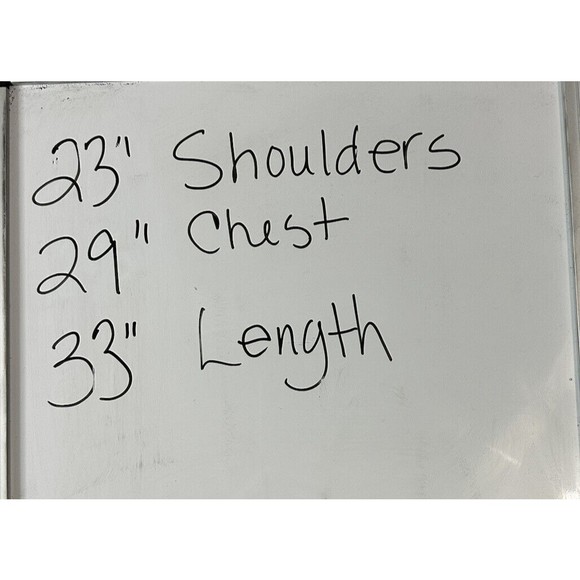 23" Shoulders
29" Chest
33" Length